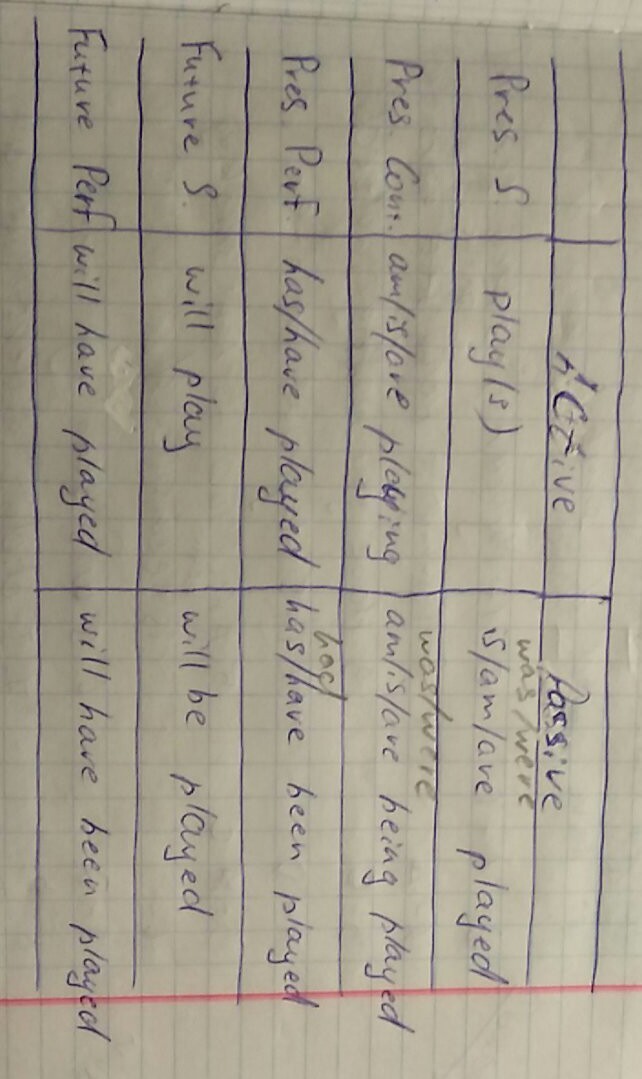 Active Passive
was/were
Pres S. play(s) is/am/are played
was/were
Pres Cont. am/is/are playing am/is/are being played
had
Pres Perf. has/have played has/have been played
Future S. will play will be played
Future Perf will have played will have been played